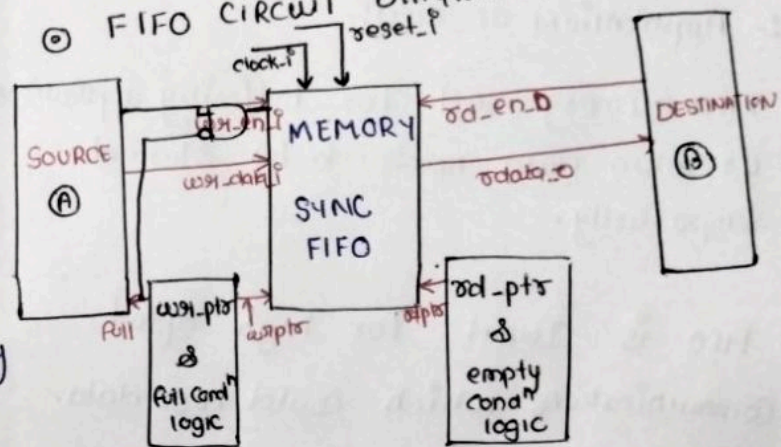 FIFO CIRCUIT
reset_i
clock_i
SOURCE
A
wr_en_i
wr_data_i
MEMORY
SYNC
FIFO
rd_en_D
rdata_o
DESTINATION
B
full
wr_ptr
&
full condⁿ
logic
wrptr
rdptr
rd_ptr
&
empty
condⁿ
logic